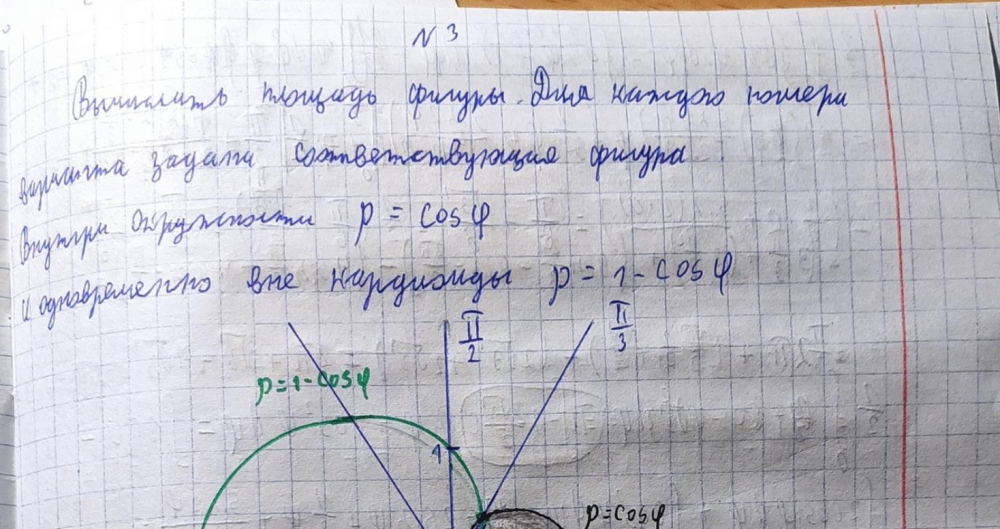 N 3
Вычислить площадь фигуры. Для каждого номера
варианта задана соответствующая фигура
Внутри окружности ρ = cosφ
и одновременно вне кардиоиды ρ = 1 - cosφ
π/2
π/3
ρ=1-cosφ
1
ρ=cosφ